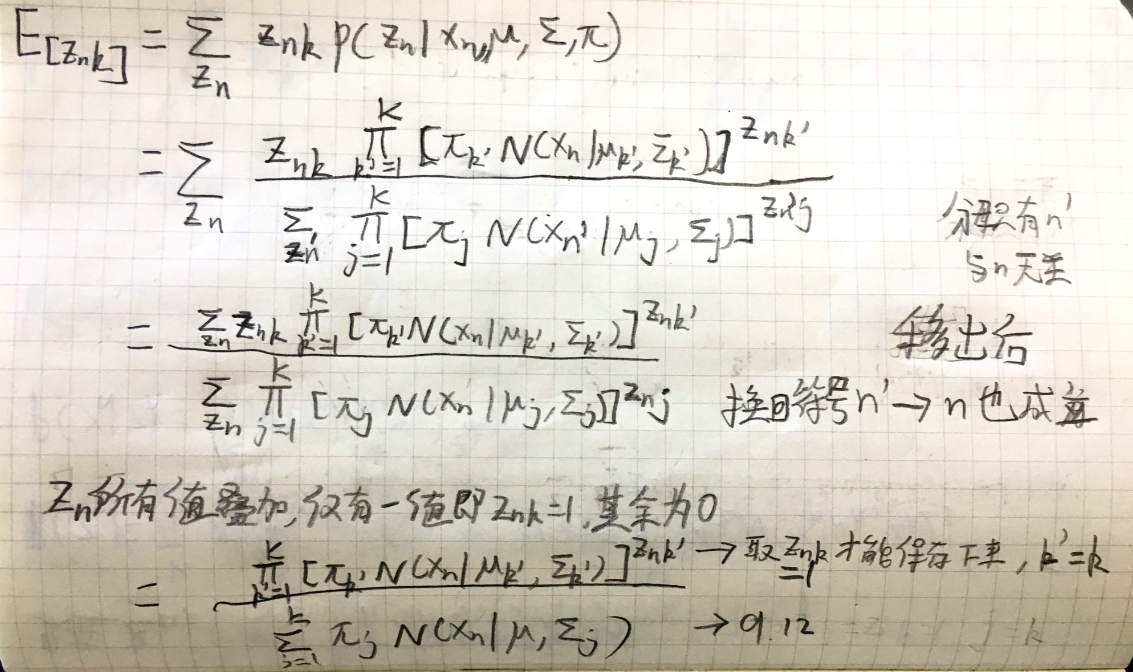 E[z_nk] = Σ_{z_n} z_nk p(z_n | x_n, μ, Σ, π)
= Σ_{z_n} \frac{z_nk ∏_{k'=1}^{K} [π_k' N(x_n | μ_k', Σ_k')]^{z_nk'}}{Σ_{z_n'} ∏_{j=1}^{K} [π_j N(x_n' | μ_j, Σ_j)]^{z_n'j}}
分母只有n'
与n无关
= \frac{Σ_{z_n} z_nk ∏_{k'=1}^{K} [π_k' N(x_n | μ_k', Σ_k')]^{z_nk'}}{Σ_{z_n} ∏_{j=1}^{K} [π_j N(x_n | μ_j, Σ_j)]^{z_nj}}
移出后
换回符号n' → n 也成立
z_n所有值叠加,仅有一值即z_nk=1,其余为0
= \frac{∏_{k'=1}^{K} [π_k' N(x_n | μ_k', Σ_k')]^{z_nk'}}{Σ_{j=1}^{k} π_j N(x_n | μ, Σ_j)}
→ 取z_nk=1才能保存下来, k'=k
→ 9.12